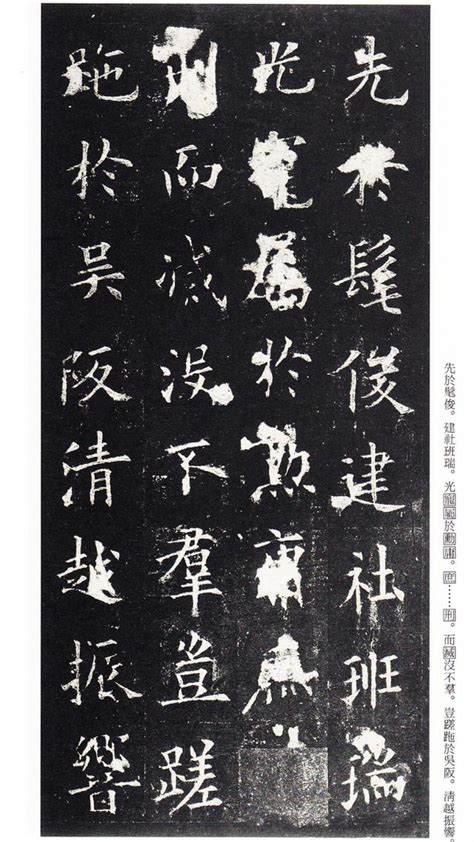 先於髦俊建社班瑞
光寵屬於勳庸
刑而滅没不羣豈蹉
跎於吴阪清越振響
先於髦俊。建社班瑞。光寵屬於勳庸。……刑。而滅沒不羣。豈蹉跎於吳阪。清越振響。